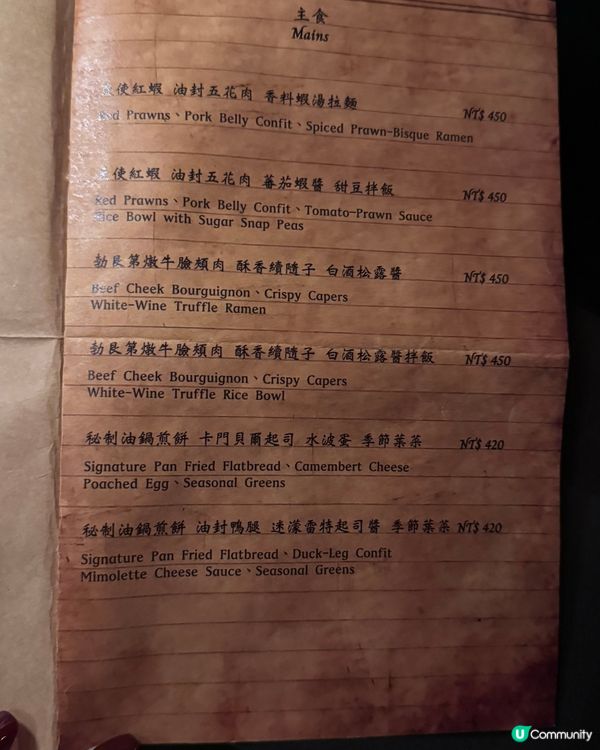 主食
Mains
使紅蝦 油封五花肉 香料蝦湯拉麵 NT$ 450
Red Prawns、Pork Belly Confit、Spiced Prawn-Bisque Ramen
使紅蝦 油封五花肉 蕃茄蝦醬 甜豆拌飯 NT$ 450
Red Prawns、Pork Belly Confit、Tomato-Prawn Sauce
Rice Bowl with Sugar Snap Peas
勃艮第燉牛臉頰肉 酥香續隨子 白酒松露醬 NT$ 450
Beef Cheek Bourguignon、Crispy Capers
White-Wine Truffle Ramen
勃艮第燉牛臉頰肉 酥香續隨子 白酒松露醬拌飯 NT$ 450
Beef Cheek Bourguignon、Crispy Capers
White-Wine Truffle Rice Bowl
秘制油鍋煎餅 卡門貝爾起司 水波蛋 季節葉菜 NT$ 420
Signature Pan Fried Flatbread、Camembert Cheese
Poached Egg、Seasonal Greens
秘制油鍋煎餅 油封鴨腿 迷濛雷特起司醬 季節葉菜 NT$ 420
Signature Pan Fried Flatbread、Duck-Leg Confit
Mimolette Cheese Sauce、Seasonal Greens
U Community